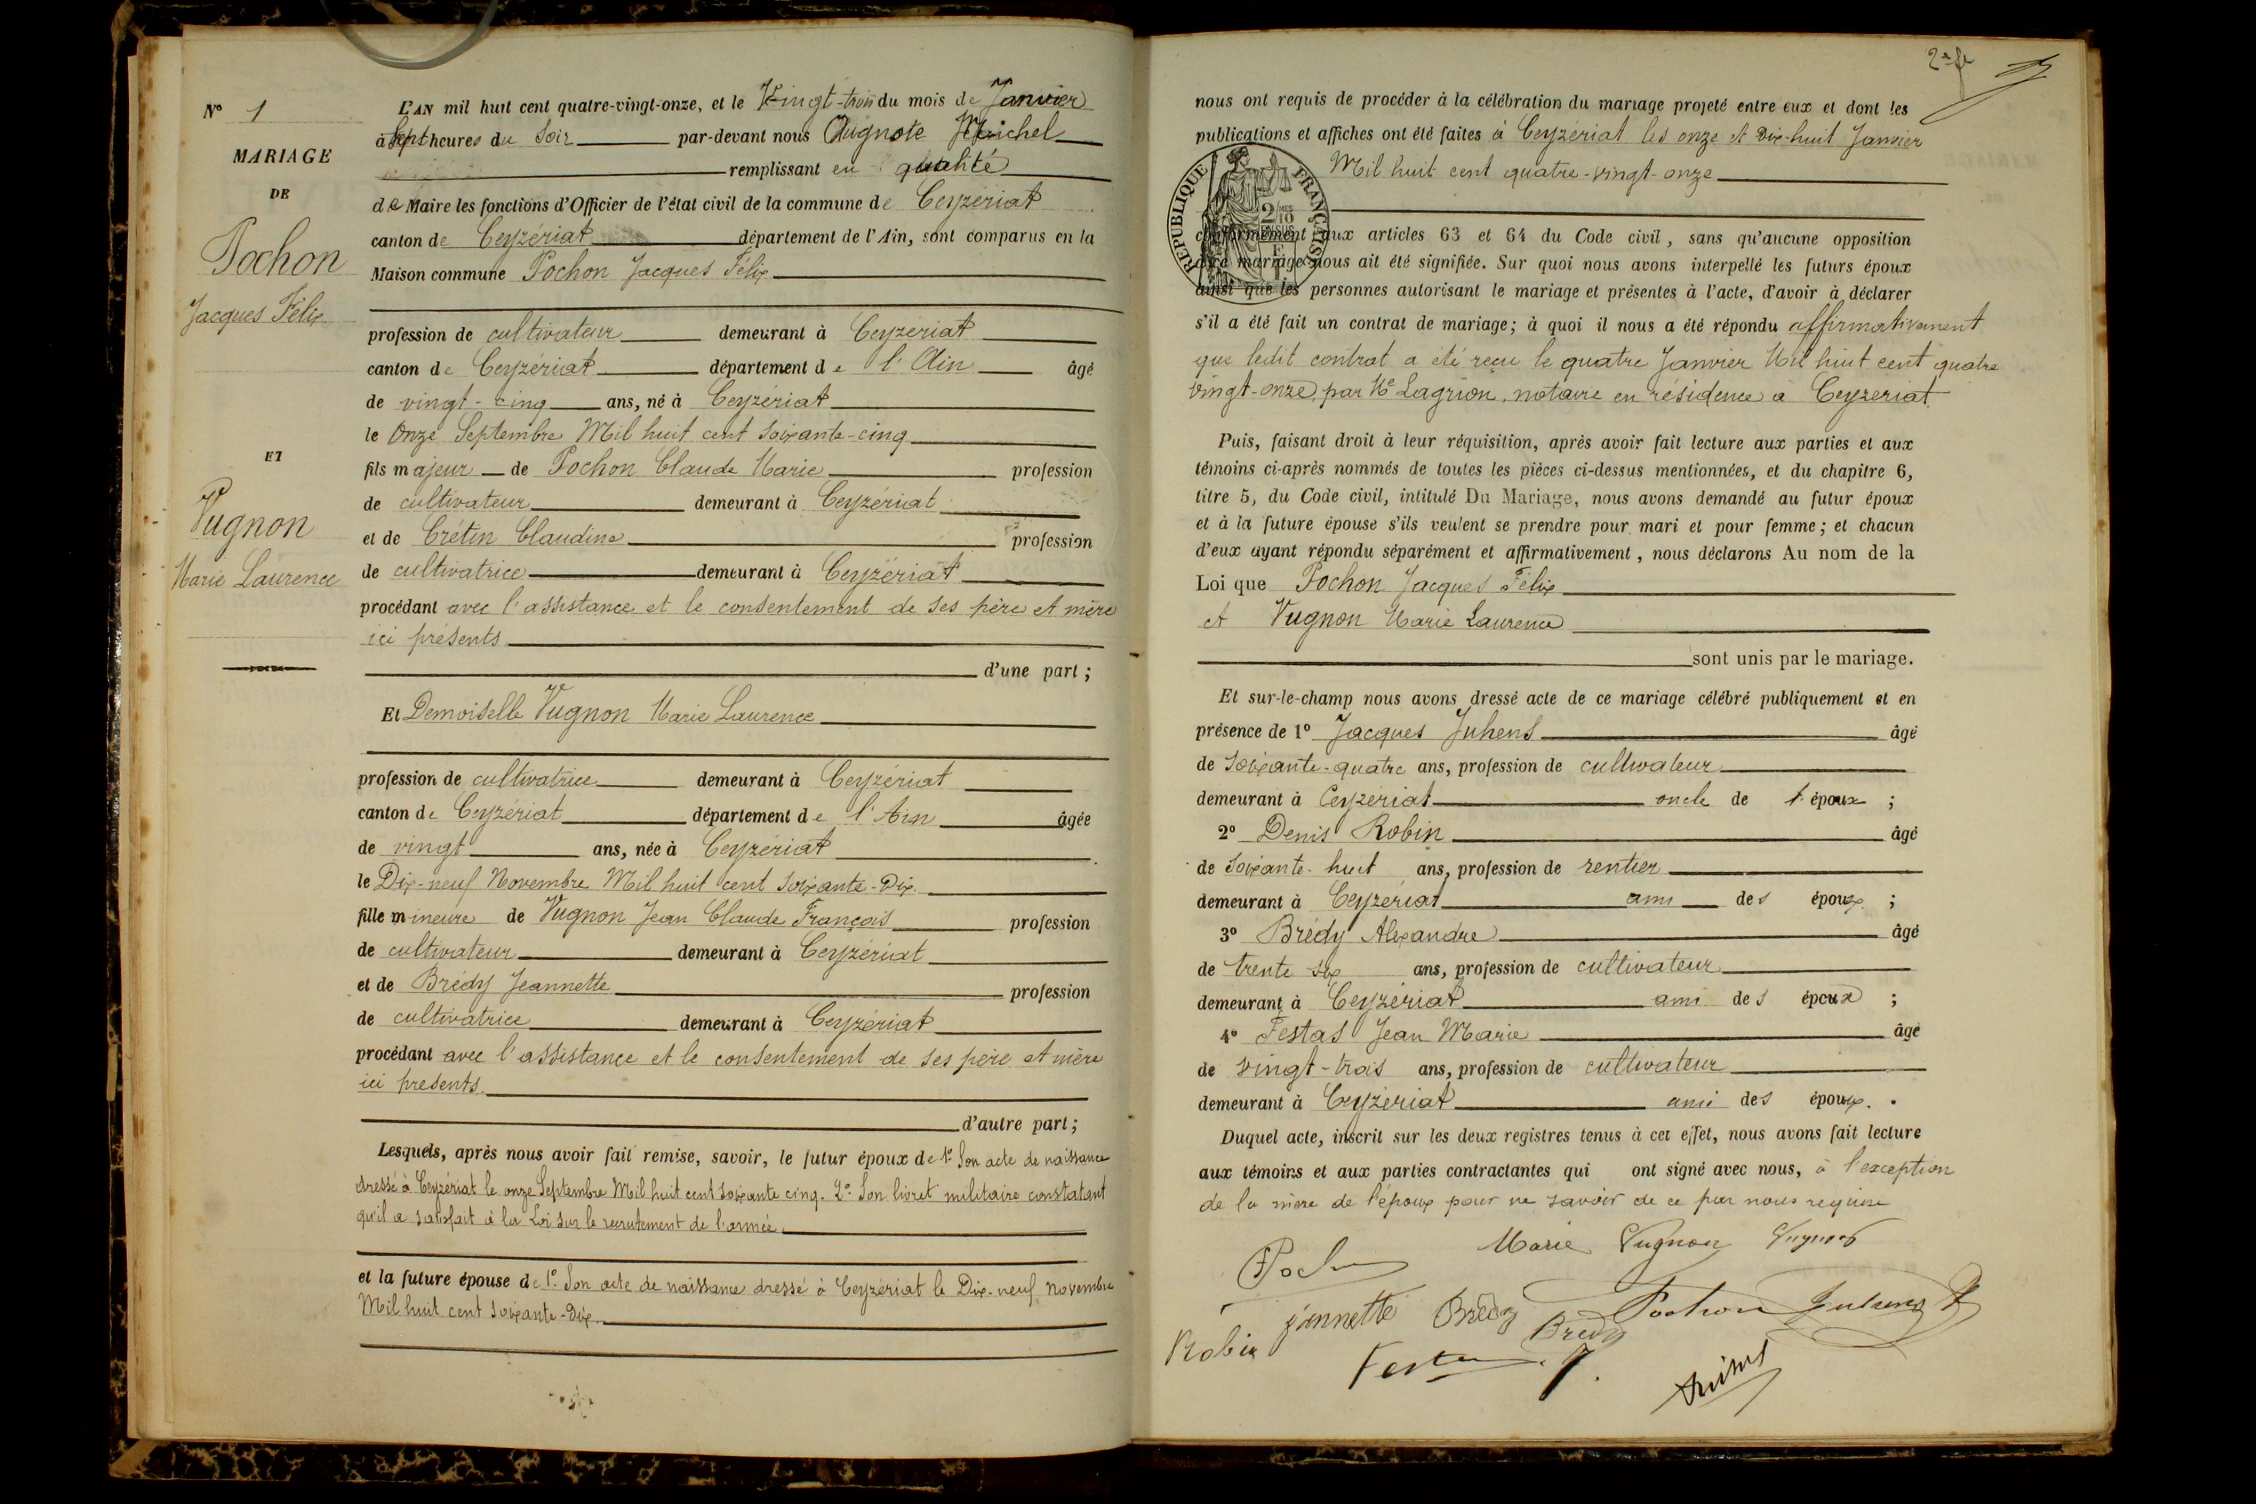 N° 1
MARIAGE
DE
Pochon
Jacques Félix
ET
Vugnon
Marie Laurence
L'AN mil huit cent quatre-vingt-onze, et le Vingt-trois du mois de Janvier
à Sept heures du Soir par-devant nous Michel
remplissant en qualité
de Maire les fonctions d'Officier de l'état civil de la commune de Ceyzériat
canton de Ceyzériat département de l'Ain, sont comparus en la
Maison commune Pochon Jacques Félix
profession de cultivateur demeurant à Ceyzériat
canton de Ceyzériat département de l'Ain âgé
de vingt-cinq ans, né à Ceyzériat
le Onze Septembre Mil huit cent soixante-cinq
fils majeur de Pochon Claude Marie profession
de cultivateur demeurant à Ceyzériat
et de Crétin Claudine profession
de cultivatrice demeurant à Ceyzériat
procédant avec l'assistance et le consentement de ses père et mère
ici présents
d'une part ;
Et Demoiselle Vugnon Marie Laurence
profession de cultivatrice demeurant à Ceyzériat
canton de Ceyzériat département de l'Ain âgée
de vingt ans, née à Ceyzériat
le Dix-neuf Novembre Mil huit cent soixante-Dix
fille mineure de Vugnon Jean Claude François profession
de cultivateur demeurant à Ceyzériat
et de Brédy Jeannette profession
de cultivatrice demeurant à Ceyzériat
procédant avec l'assistance et le consentement de ses père et mère
ici presents
d'autre part ;
Lesquels, après nous avoir fait remise, savoir, le futur époux de 1° Son acte de naissance
dressé à Ceyzériat le onze Septembre Mil huit cent soixante cinq. 2° Son livret militaire constatant
qu'il a satisfait à la Loi sur le recrutement de l'armée.
et la future épouse de 1° Son acte de naissance dressé à Ceyzériat le Dix-neuf novembre
Mil huit cent soixante-Dix.
2e f
nous ont requis de procéder à la célébration du mariage projeté entre eux et dont les
publications et affiches ont été faites à Ceyzériat les onze et Dix-huit Janvier
Mil huit cent quatre-vingt-onze
REPUBLIQUE FRANÇAISE
2/10 EN SUS
conformément aux articles 63 et 64 du Code civil, sans qu'aucune opposition
audit mariage nous ait été signifiée. Sur quoi nous avons interpellé les futurs époux
ainsi que les personnes autorisant le mariage et présentes à l'acte, d'avoir à déclarer
s'il a été fait un contrat de mariage; à quoi il nous a été répondu affirmativement
que ledit contrat a été reçu le quatre Janvier Mil huit cent quatre
vingt-onze, par Me Lagrion, notaire en résidence à Ceyzeriat
Puis, faisant droit à leur réquisition, après avoir fait lecture aux parties et aux
témoins ci-après nommés de toutes les pièces ci-dessus mentionnées, et du chapitre 6,
titre 5, du Code civil, intitulé Du Mariage, nous avons demandé au futur époux
et à la future épouse s'ils veulent se prendre pour mari et pour femme; et chacun
d'eux ayant répondu séparément et affirmativement, nous déclarons Au nom de la
Loi que Pochon Jacques Félix
et Vugnon Marie Laurence
sont unis par le mariage.
Et sur-le-champ nous avons dressé acte de ce mariage célébré publiquement et en
présence de 1° Jacques Juhens âgé
de soixante-quatre ans, profession de cultivateur
demeurant à Ceyzériat oncle de l'époux ;
2° Denis Robin âgé
de soixante-huit ans, profession de rentier
demeurant à Ceyzériat ami des époux ;
3° Brédy Alexandre âgé
de trente six ans, profession de cultivateur
demeurant à Ceyzériat ami des époux ;
4° Festas Jean Marie âgé
de vingt-trois ans, profession de cultivateur
demeurant à Ceyzériat ami des époux.
Duquel acte, inscrit sur les deux registres tenus à cet effet, nous avons fait lecture
aux témoins et aux parties contractantes qui ont signé avec nous, à l'exception
de la mère de l'époux pour ne savoir de ce par nous requise
Marie Vugnon Vugnon
jannette Brédy Pochon
Robin Brédy